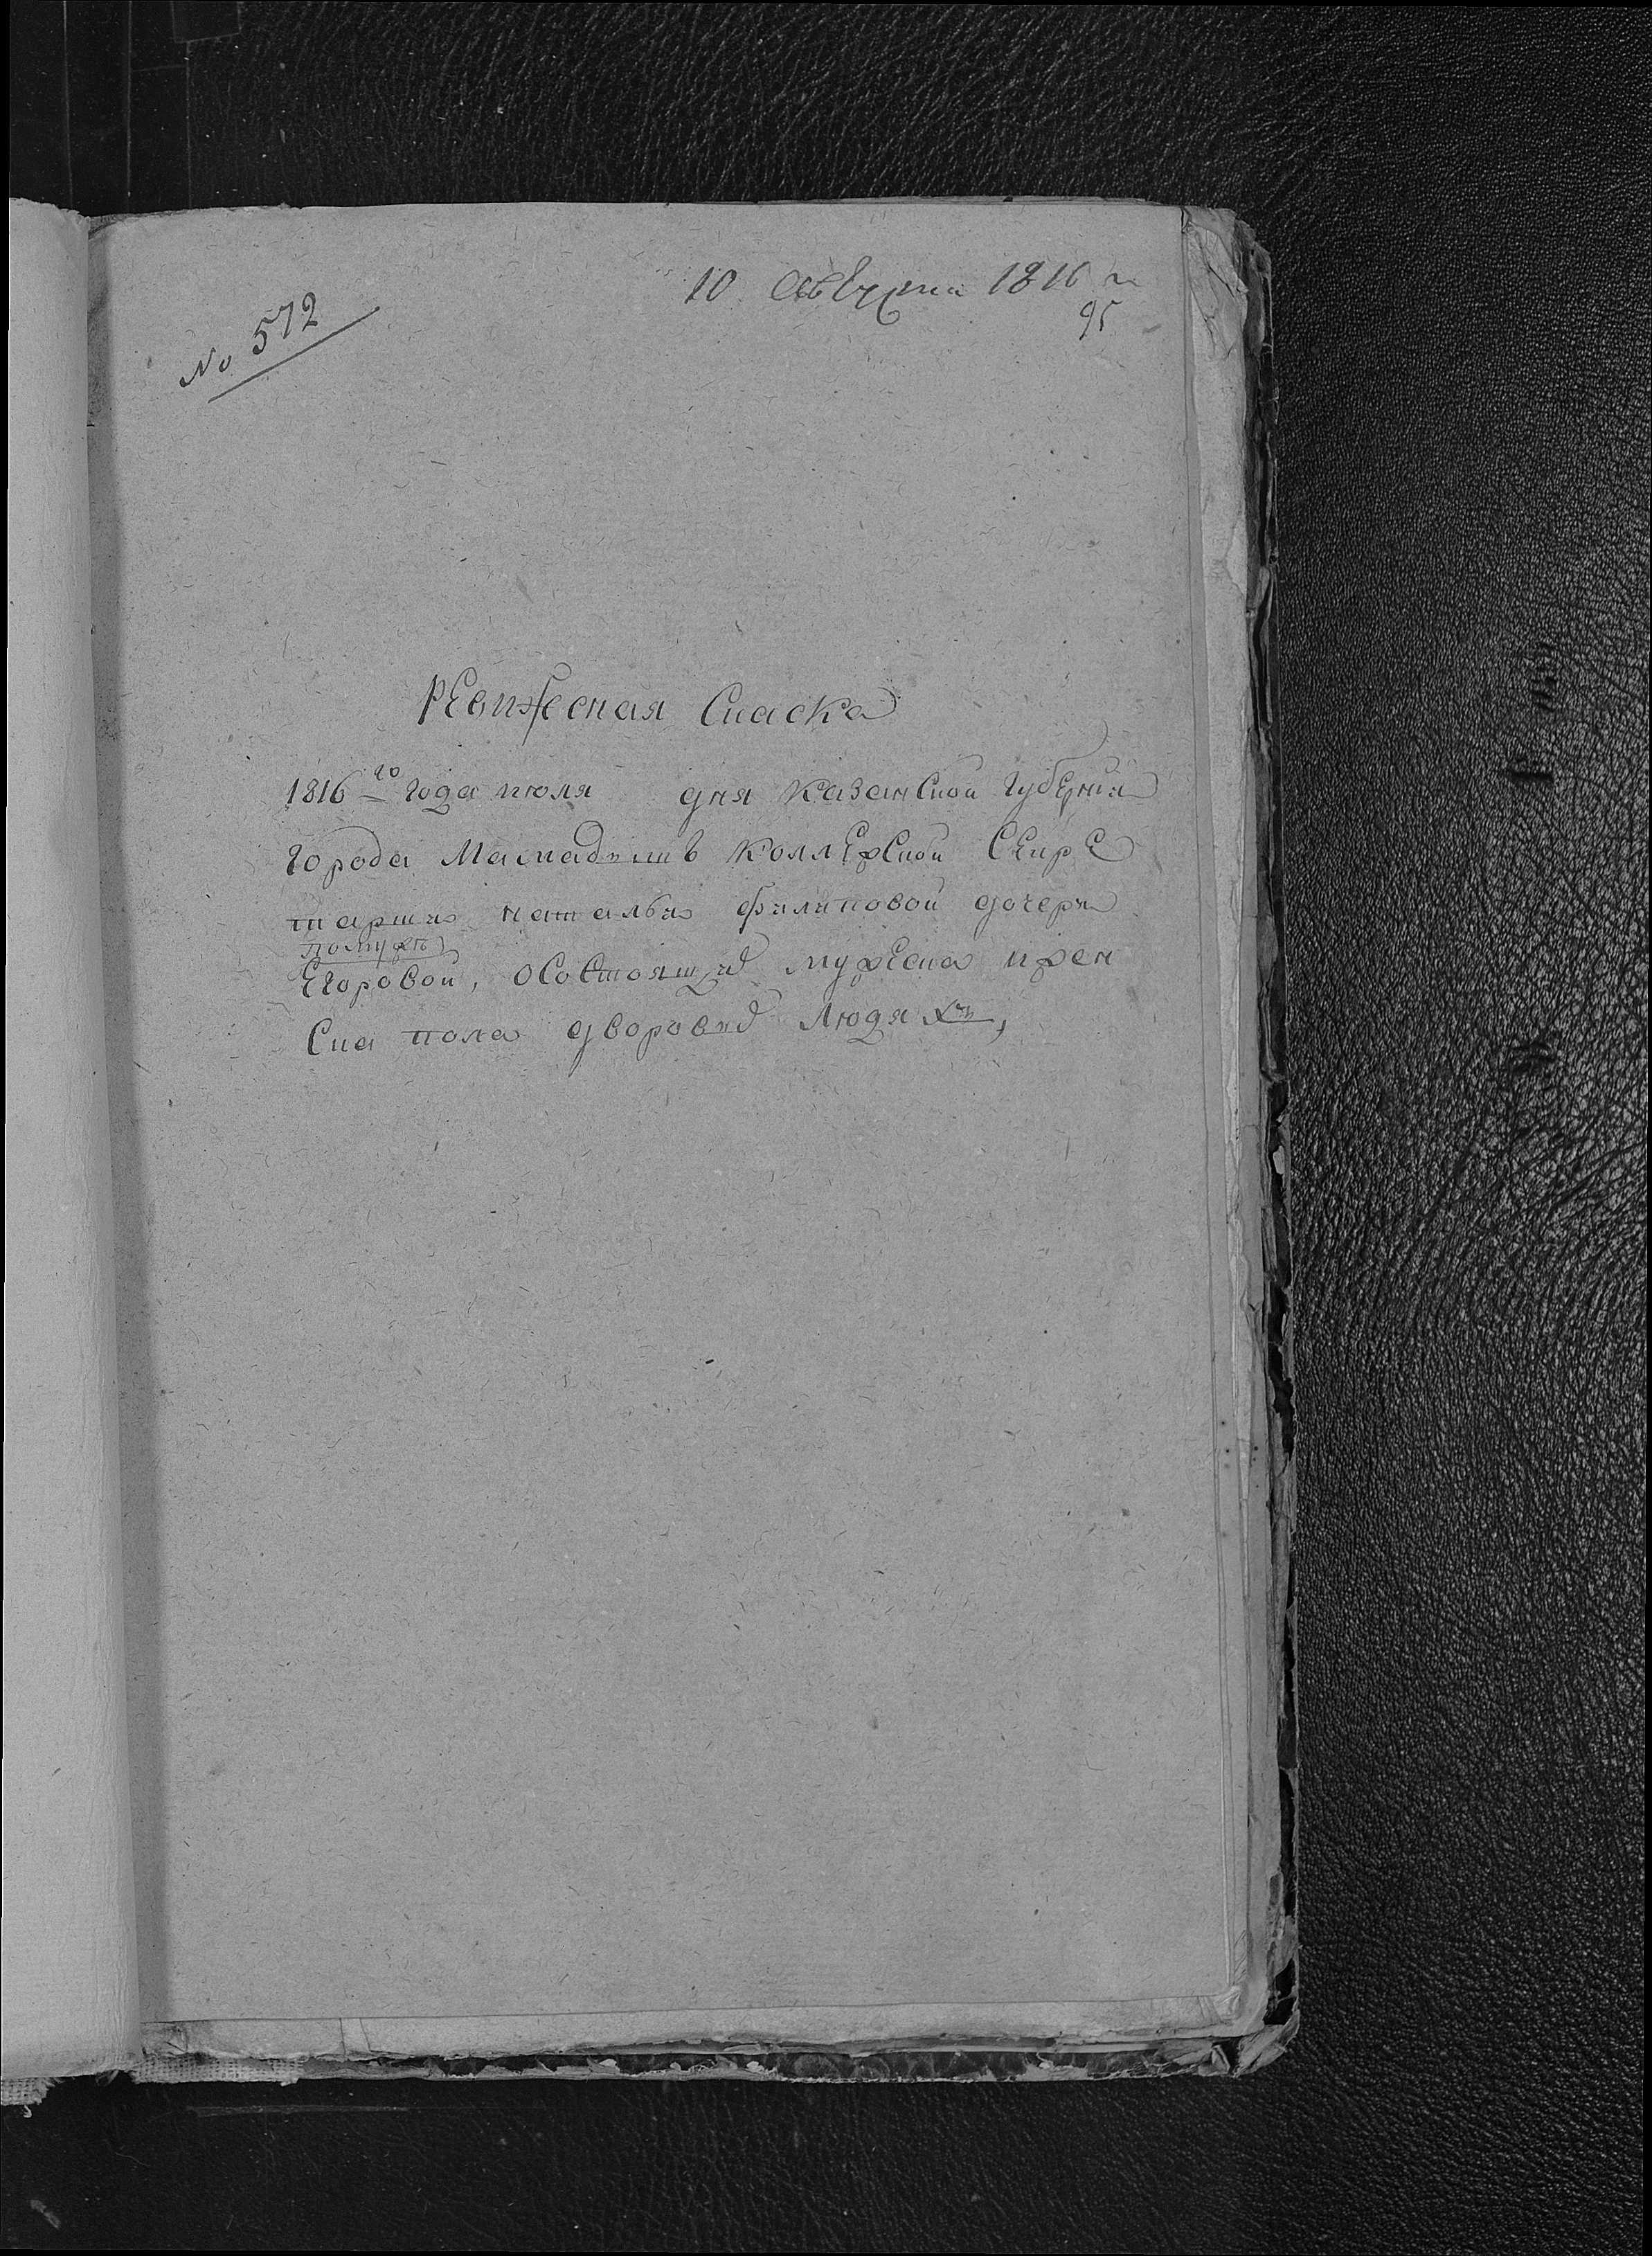 10 августа 1816 г
95
No 572
Ревижеская Скаска
1816 го года июля дня казанской губернии
города Мамадыша колležской Секре
тарши натальи филиповой дочери
помуже
Егоровой, осостоящих мужеска ижен
Ска пола дворовых людях,